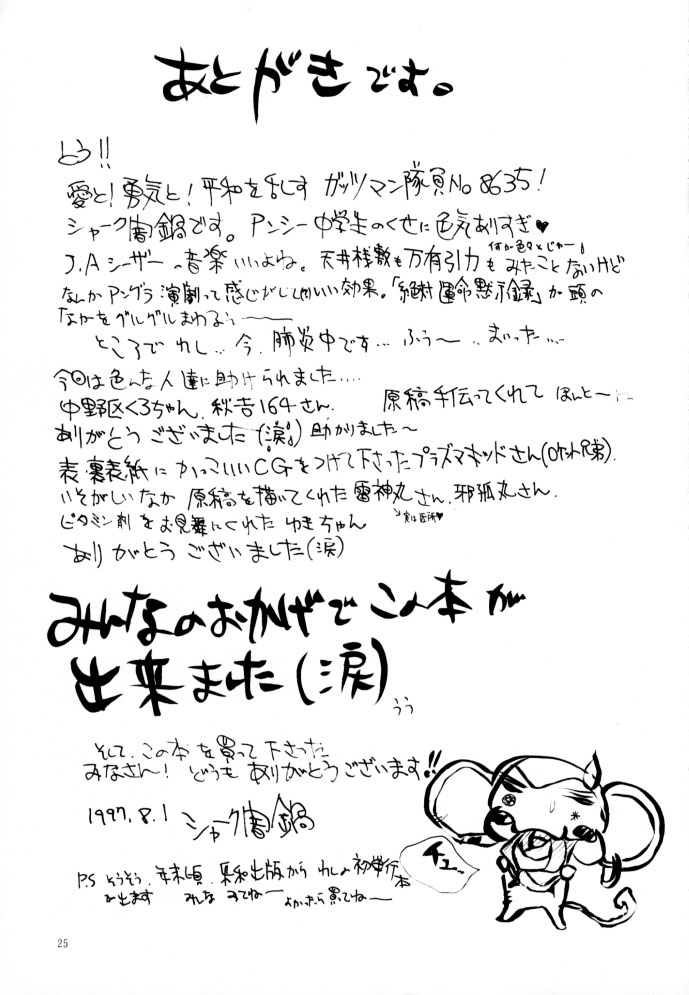 あとがきです。
とう!!
愛と!勇気と!平和を乱すガッツマン隊員No 8635!
シャーク闇鍋です。アンシー中学生のくせに色気ありすぎ♥
J.Aシーザーの音楽いいよね。天井桟敷も万有引力もみたことないけど
なんかアングラ演劇って感じがしていい効果。「絶対運命黙示録」が頭の
なかをグルグルまわるぅ〜〜
ところでわし…今、肺炎中です…ふぅ〜…まいった…
今回は色んな人達に助けられました…
中野区くろちゃん、秋吉164さん、原稿手伝ってくれてほんと〜に
ありがとうございました(涙)助かりました〜
表・裏表紙にかっこいいCGをつけて下さったプラズマキッドさん(ロケット兄弟).
いそがしいなか原稿を描いてくれた雷神丸さん、邪狐丸さん
ビタミン剤をお見舞にくれたゆきちゃん
ありがとうございました(涙)
みんなのおかげでこの本が
出来ました(涙)
うう
そして、この本を買って下さった
みなさん!どうもありがとうございます!!
1997.8.1 シャーク闇鍋
チュー
P.S そうそう、年末頃、東和出版からわしの初単行本
を出ます みんなみてねー よかったら買てねー
25